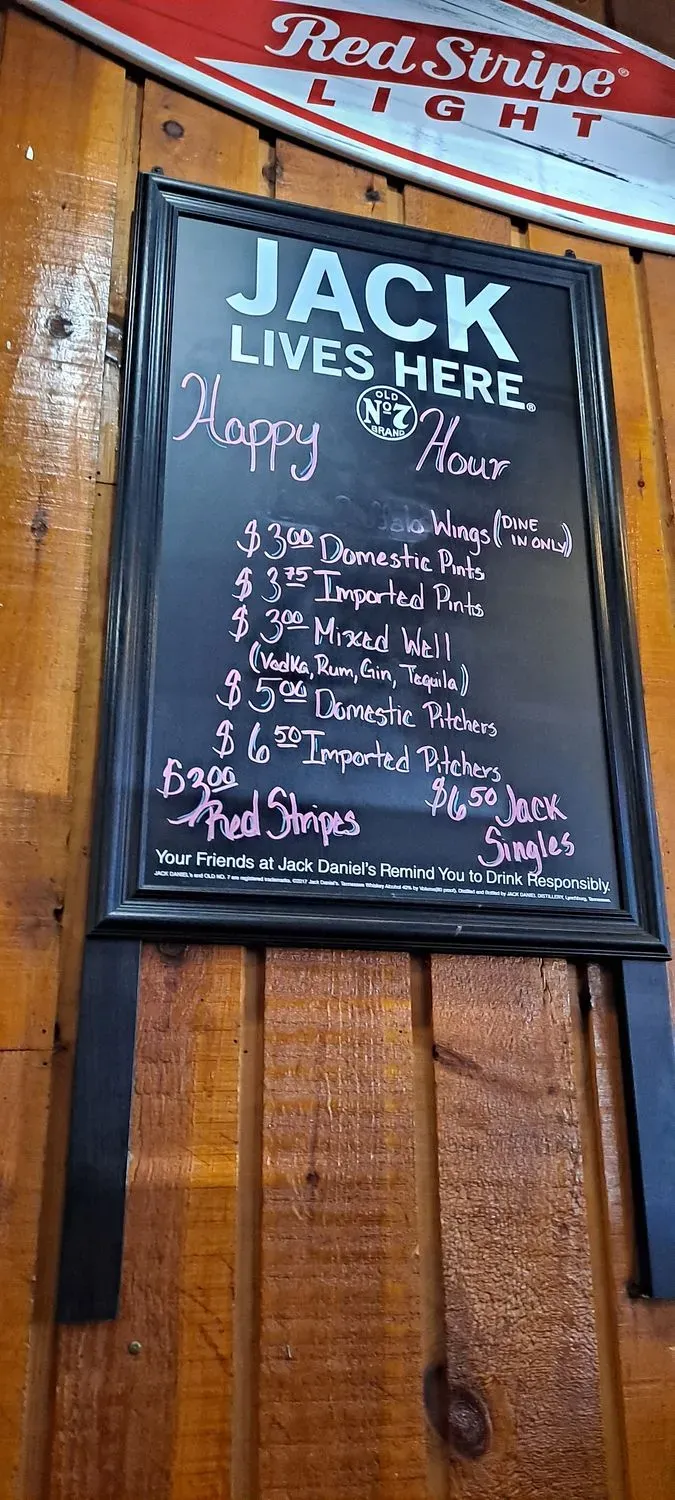 Red Stripe®
LIGHT
JACK
LIVES HERE®
OLD
Nº7
BRAND
Happy Hour
Wings (DINE IN ONLY)
$3.00 Domestic Pints
$3.75 Imported Pints
$3.00 Mixed Well
(Vodka, Rum, Gin, Tequila)
$5.00 Domestic Pitchers
$6.50 Imported Pitchers
$3.00
Red Stripes
$6.50 Jack
Singles
Your Friends at Jack Daniel's Remind You to Drink Responsibly.
JACK DANIEL'S and OLD NO. 7 are registered trademarks. ©2017 Jack Daniel's. Tennessee Whiskey Alcohol 40% by Volume (80 proof). Distilled and Bottled by JACK DANIEL DISTILLERY, Lynchburg, Tennessee.